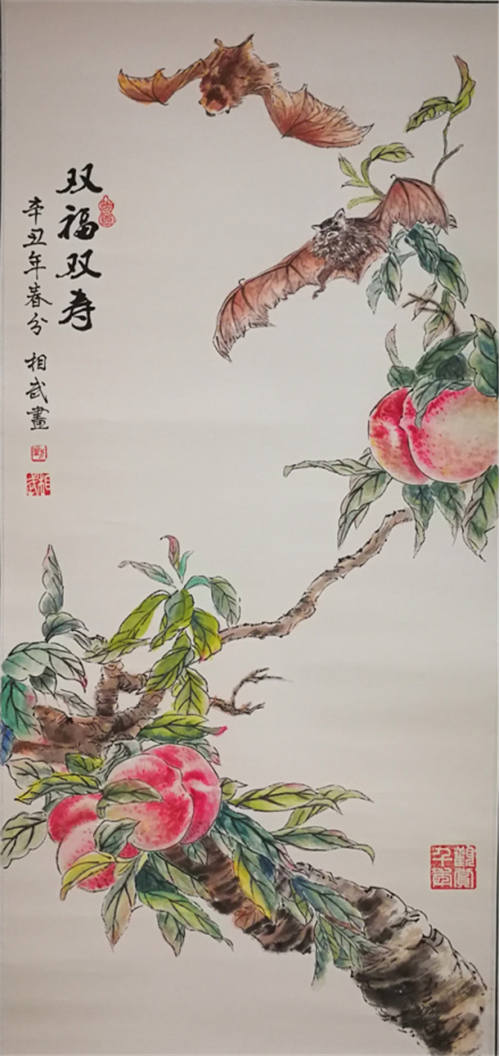 双福双寿
辛丑年春分 相武畫